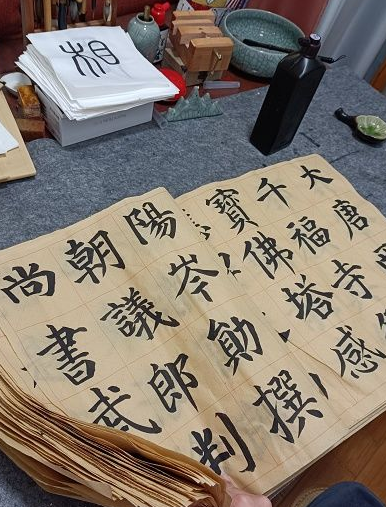 相
大唐
千福寺
寶佛塔感
陽岑勛撰
朝議郎判
尚書武